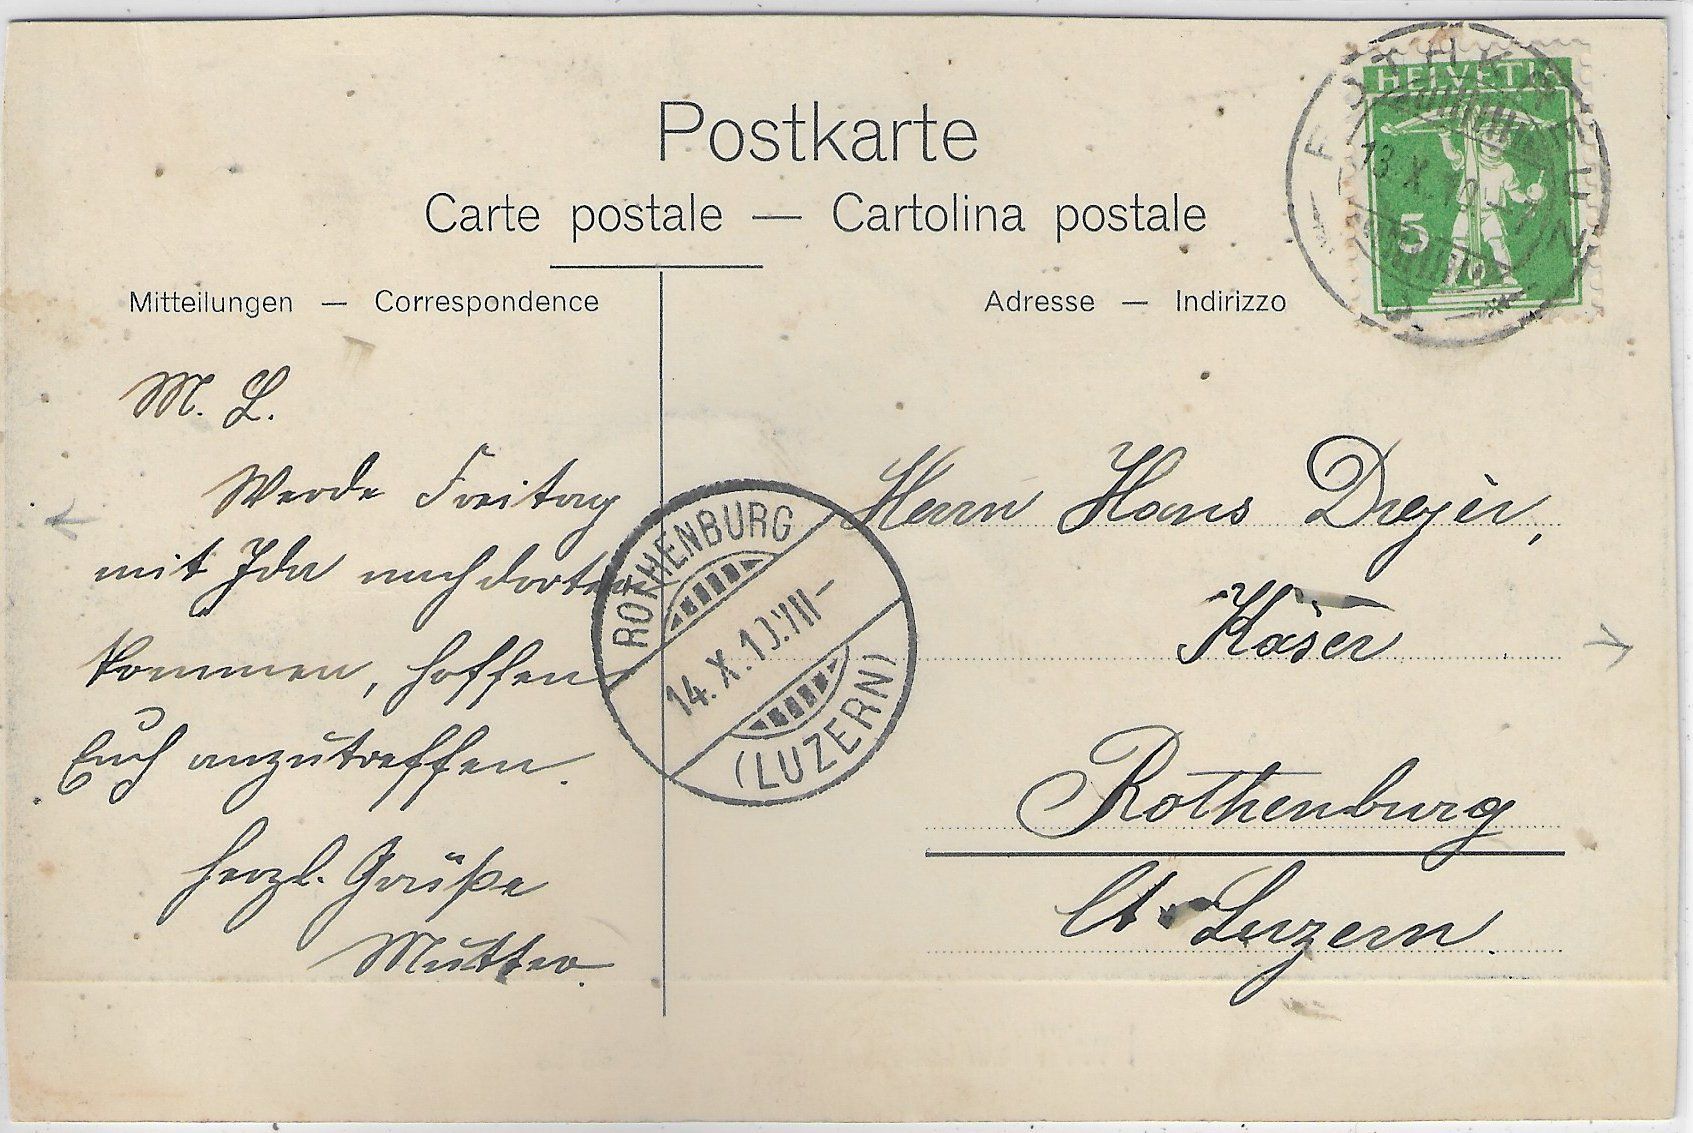 Postkarte
Carte postale — Cartolina postale
Mitteilungen — Correspondence
Adresse — Indirizzo
HELVETIA
5
13. X. 10
M. L.
Werde Freitag
mit Ida nach dorten
kommen, hoffen
Euch anzutreffen.
herzl. Grüße
Mutter.
ROTHENBURG
14. X. 10. VII-
(LUZERN)
Herrn Hans
Käser
Rothenburg
Ct. Luzern.